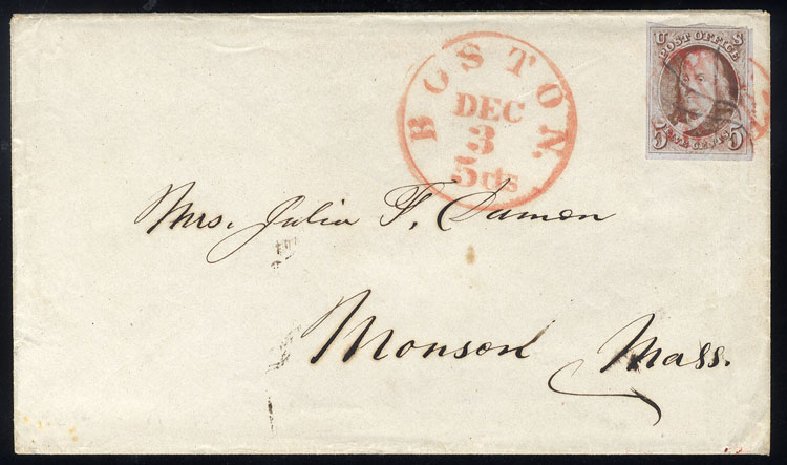 BOSTON
DEC
3
5 cts
U S
POST OFFICE
5 FIVE CENTS 5
Mrs. Julia F. Damon
Monson Mass.